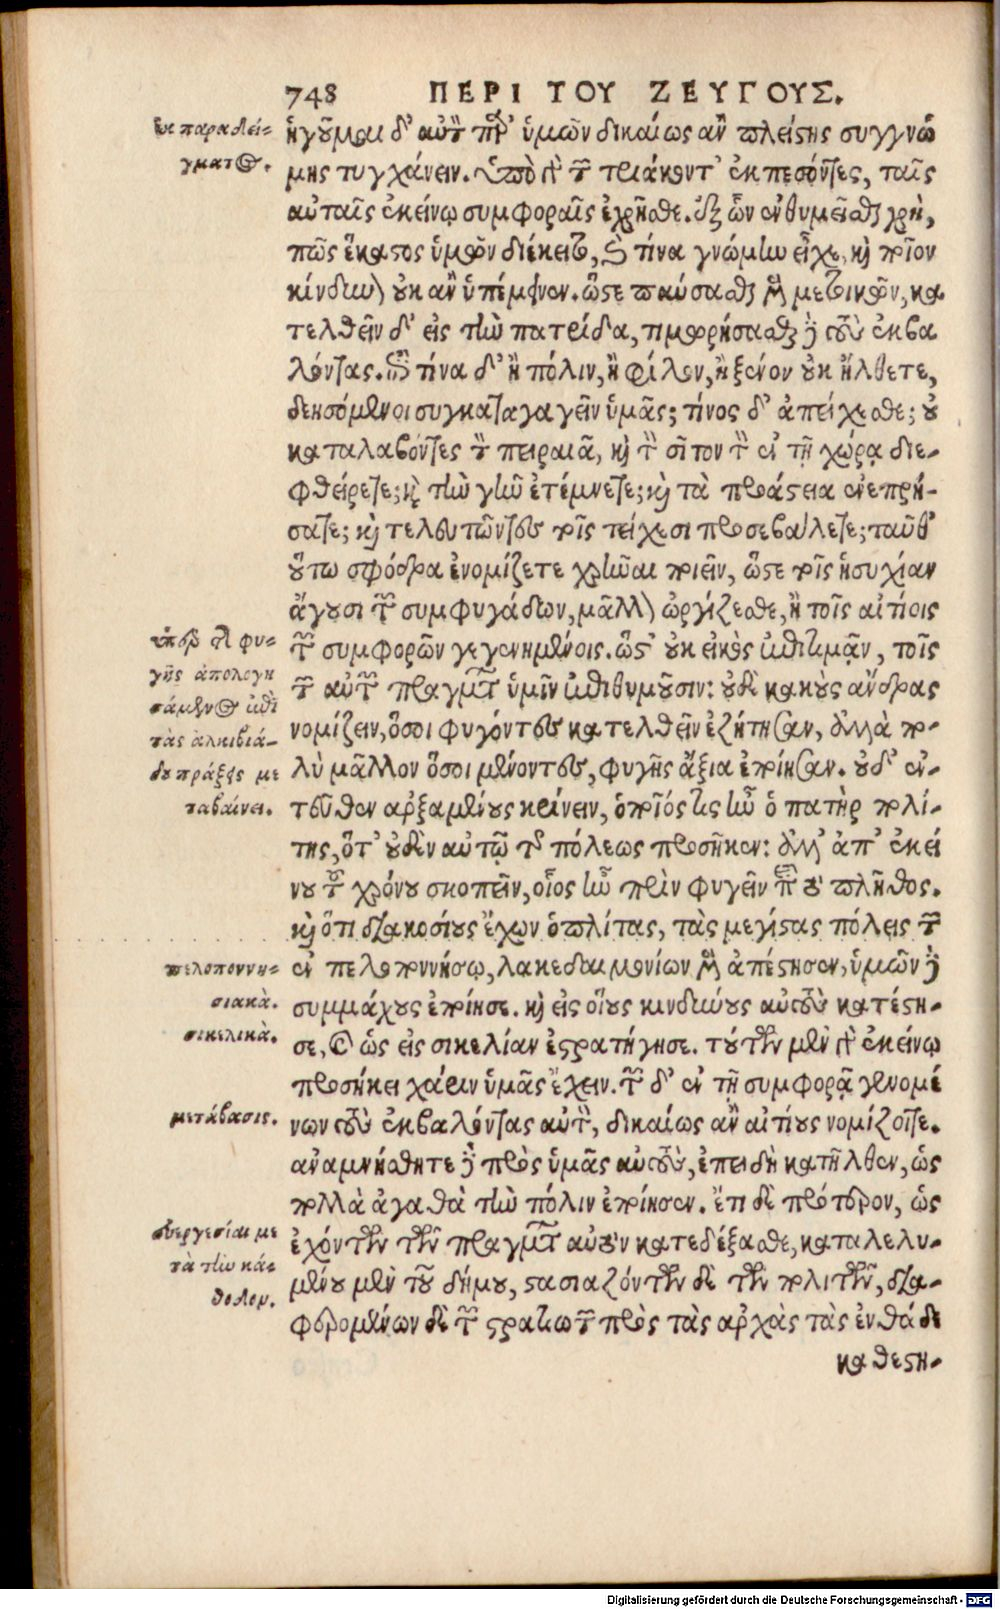 748 ΠΕΡΙ ΤΟΥ ΖΕΥΓΟΥΣ.
ἐκ παραδείγ-
ματος.
ἡγοῦμαι δ' αὐτὸν παρ' ὑμῶν δικαίως ἂν πλείστης συγγνώ
μης τυγχάνειν. ὑπὸ γὰρ τῶν τριάκοντ' ἐκπεσόντες, ταῖς
αὐταῖς ἐκείνῳ συμφοραῖς ἐχρῆσθε. ἐξ ὧν ἐνθυμεῖσθαι χρὴ,
πῶς ἕκαστος ὑμῶν διέκειτο, καὶ τίνα γνώμην εἶχε, καὶ ποῖον
κίνδυνον οὐκ ἂν ὑπέμεινεν. ὥστε παύσασθαι μὲν μετοικῶν, κα
τελθεῖν δ' εἰς τὴν πατρίδα, τιμωρήσασθαι δὲ τοὺς ἐκβα
λόντας. ἐπὶ τίνα δ' ἢ πόλιν, ἢ φίλον, ἢ ξένον οὐκ ἤλθετε,
δεησόμενοι συγκαταγαγεῖν ὑμᾶς; τίνος δ' ἀπείχεσθε; οὐ
καταλαβόντες τὸν πειραιᾶ, καὶ τὸν σῖτον τὸν ἐν τῇ χώρᾳ διε-
φθείρετε; καὶ τὴν γῆν ἐτέμνετε; καὶ τὰ προάστεια ἐνεπρή-
σατε; καὶ τελευτῶντες τοῖς τείχεσι προσεβάλετε; ταῦθ'
οὕτω σφόδρα ἐνομίζετε χρῆναι ποιεῖν, ὥστε τοῖς ἡσυχίαν
ἄγουσι τῶν συμφυγάδων, μᾶλλον ὠργίζεσθε, ἢ τοῖς αἰτίοις
ὑπὲρ τῆς φυ-
γῆς ἀπολογη
σάμενος ἐπὶ
τὰς ἀλκιβιά-
δου πράξεις με
ταβαίνει.
τῶν συμφορῶν γεγενημένοις. ὥστ' οὐκ εἰκὸς ἐπιτιμᾷν, τοῖς
τῶν αὐτῶν πραγμάτων ὑμῖν ἐπιθυμοῦσιν: οὐδὲ κακοὺς ἄνδρας
νομίζειν, ὅσοι φυγόντες κατελθεῖν ἐζήτησαν, ἀλλὰ πο-
λὺ μᾶλλον ὅσοι μένοντες, φυγῆς ἄξια ἐποίησαν. οὐδ' ἐν-
τεῦθεν ἀρξαμένους κρίνειν, ὁποῖός τις ἦν ὁ πατὴρ πολί-
της, ὅτ' οὐδὲν αὐτῷ τῆς πόλεως προσῆκεν: ἀλλ' ἀπ' ἐκεί
νου τοῦ χρόνου σκοπεῖν, οἷος ἦν πρὶν φυγεῖν περὶ τὸ πλῆθος.
καὶ ὅτι διακοσίους ἔχων ὁπλίτας, τὰς μεγίστας πόλεις τῶν
πελοποννη-
σιακὰ.
σικελικὰ.
ἐν πελοποννήσῳ, λακεδαιμονίων μὲν ἀπέστησεν, ὑμῶν δὲ
συμμάχους ἐποίησε. καὶ εἰς οἵους κινδύνους αὐτοὺς κατέστη-
σε, καὶ ὡς εἰς σικελίαν ἐστρατήγησε. τούτων μὲν γὰρ ἐκείνῳ
προσήκει χάριν ὑμᾶς ἔχειν. τῶν δ' ἐν τῇ συμφορᾷ γενομέ
μετάβασις.
νων τοὺς ἐκβαλόντας αὐτὸν, δικαίως ἂν αἰτίους νομίζοιτε.
ἀναμνήσθητε δὲ πρὸς ὑμᾶς αὐτοὺς, ἐπειδὴ κατῆλθεν, ὡς
πολλὰ ἀγαθὰ τὴν πόλιν ἐποίησεν. ἔτι δὲ πρότερον, ὡς
εὐεργεσίαι με
τὰ τὴν κά-
θοδον.
ἐχόντων τῶν πραγμάτων αὐτὸν κατεδέξασθε, καταλελυ-
μένου μὲν τοῦ δήμου, στασιαζόντων δὲ τῶν πολιτῶν, δια-
φερομένων δὲ τῶν στρατιωτῶν πρὸς τὰς ἀρχὰς τὰς ἐνθάδε
καθεστη-
Digitalisierung gefördert durch die Deutsche Forschungsgemeinschaft - DFG